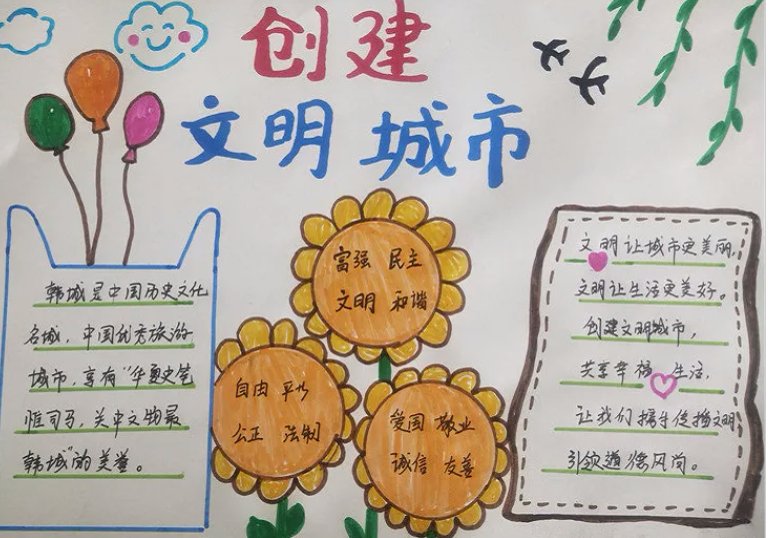 创建
文明 城市
韩城是中国历史文化
名城，中国优秀旅游
城市，享有“华夏史笔
惟司马，关中文物最
韩城”的美誉。
富强 民主
文明 和谐
自由 平等
公正 法制
爱国 敬业
诚信 友善
文明让城市更美丽，
文明让生活更美好。
创建文明城市，
共享幸福生活，
让我们携手传播文明，
引领道德风尚。